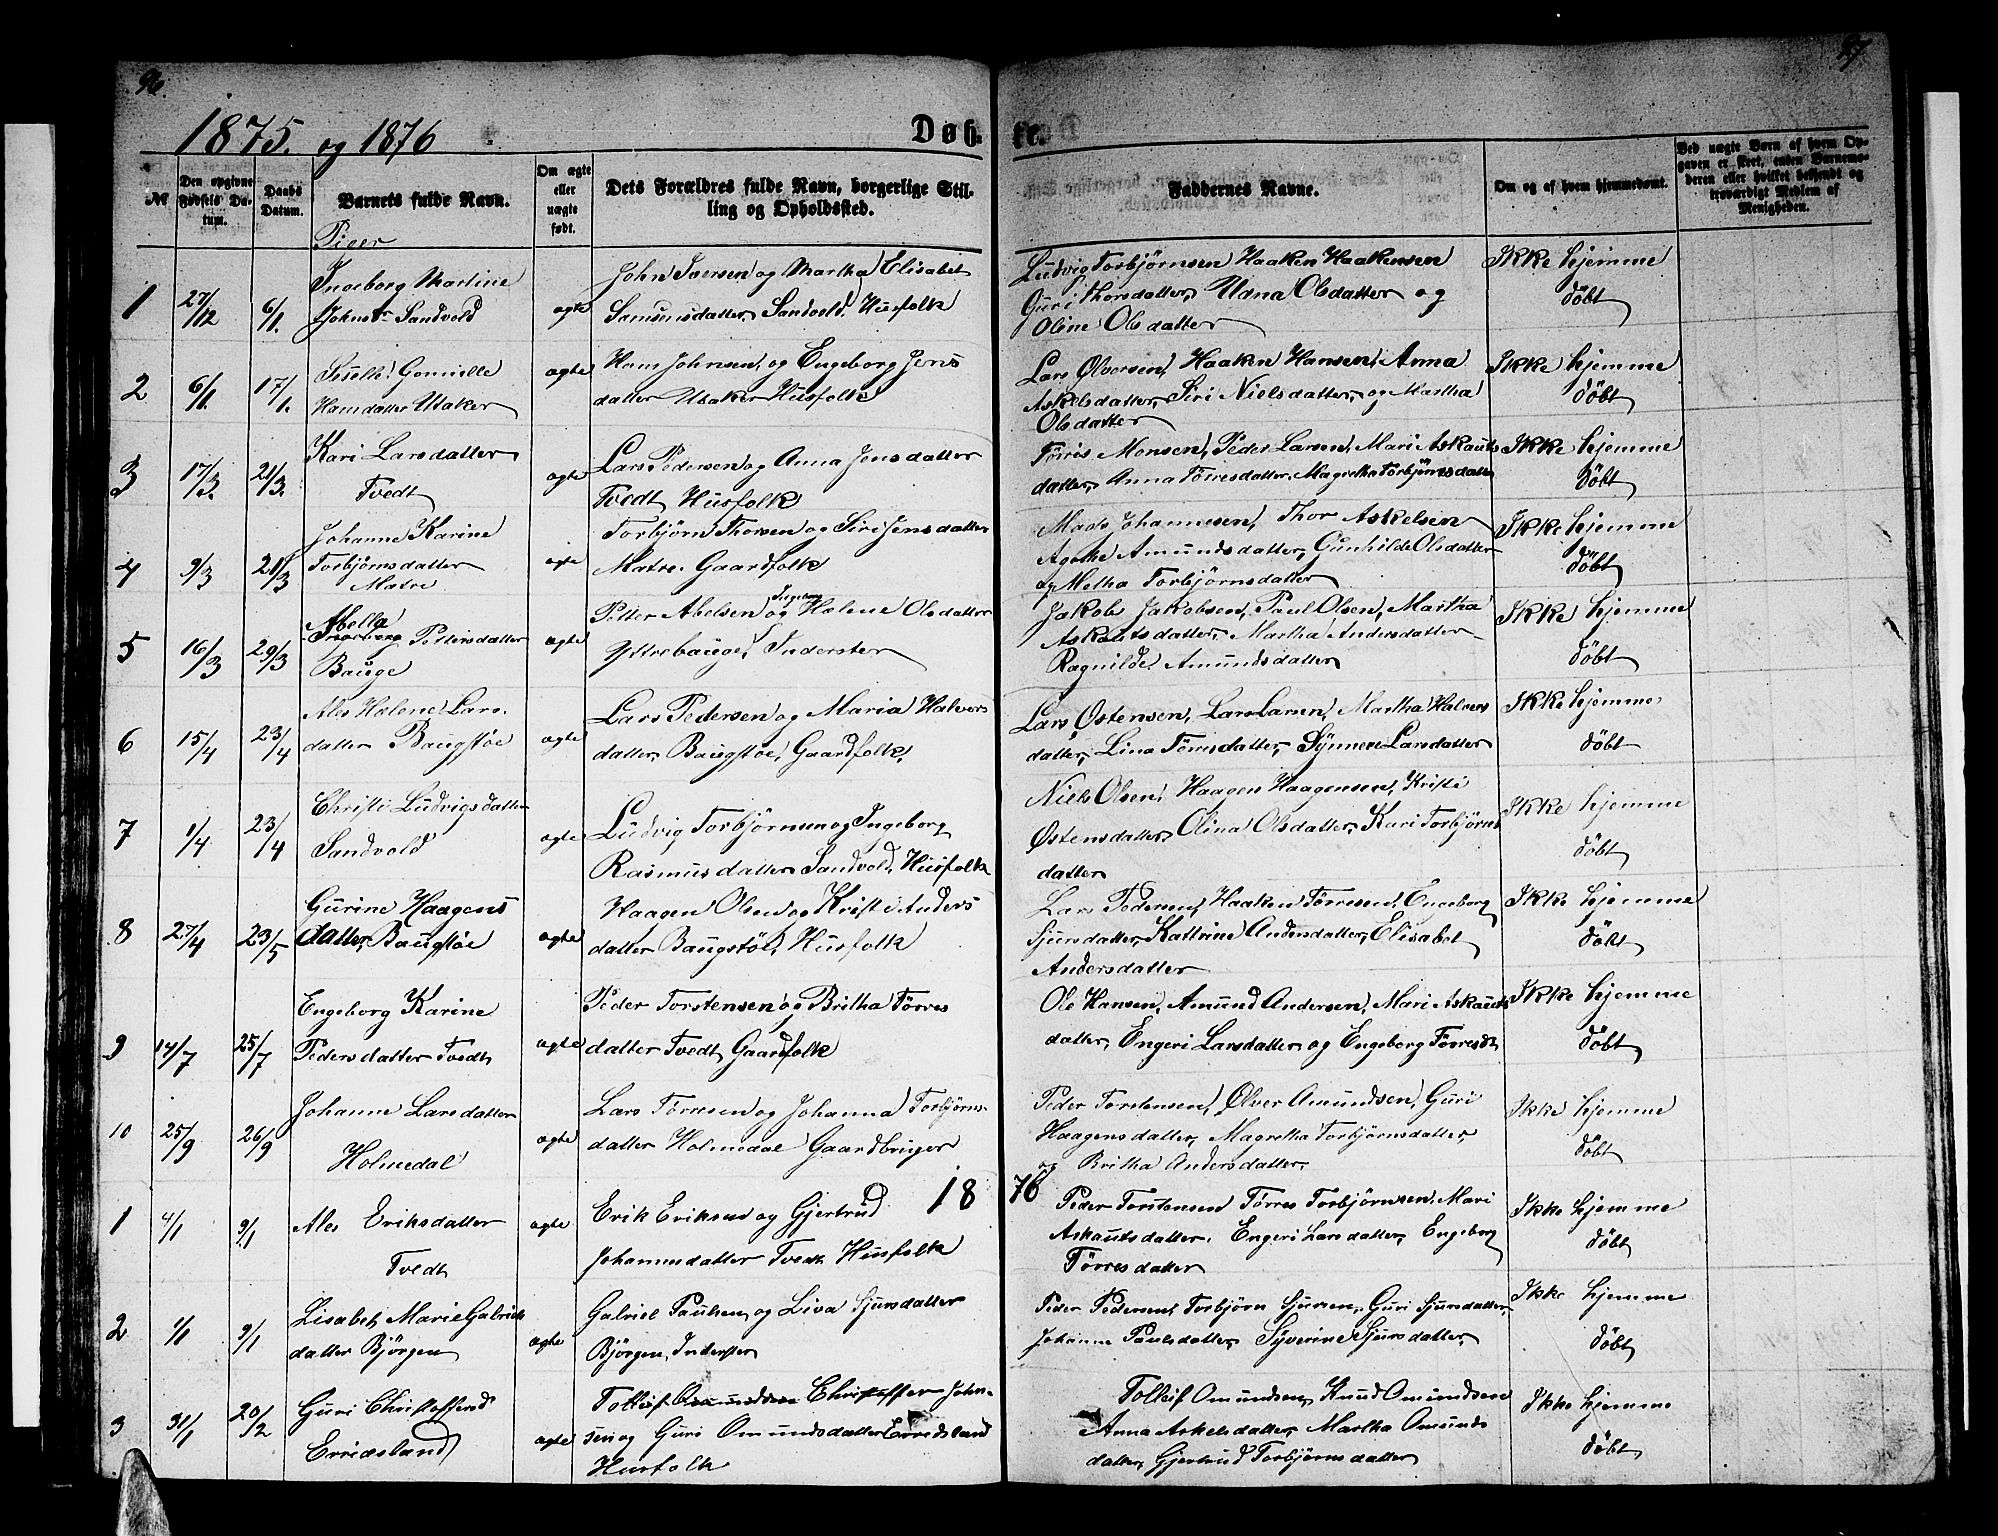 96
97
1875. og 1876
Døb- te.
№
Den opgivne Fødsels Datum.
Daabs Datum.
Barnets fulde Navn.
Om ægte eller uægte født.
Dets Forældres fulde Navn, borgerlige Stilling og Opholdssted.
Faddernes Navne.
Om og af hvem hjemmedøbt.
Ved uægte Børn af hvem Opgaven er skeet, enten Barnemoderen eller hvilket bekjendt og troværdigt Medlem af Menigheden.
Piger
1 27/12 6/1. Ingeborg Martine
Johnsdtr Sandvold
ægte
John Iversen og Martha Elisabet
Samsensdatter Sandvold. Husfolk
Ludvig Torbjørnsen Haaken Haakensen
Guri Thorsdatter, Udna Olsdatter og
Oline Olsdatter
Ikke hjemme
döbt
2 6/1. 17/1. Siselle Gomielle
Hansdatter Utaker
ægte
Hans Johnsen, og Engeborg Jens
datter Utaker Husfolk
Lars Olversen, Haaken Hansen, Anna
Askelsdatter, Siri Nielsdatter, og Martha
Olsdatter
Ikke hjemme
döbt
3 17/3. 21/3. Kari Larsdatter
Tvedt
ægte
Lars Pedersen og Anna Jensdatter
Tvedt Husfolk
Törris Monsen, Peder Larsen, Mari Askauts
datter, Anna Törresdatter, Magretha Torbjörnsdatter
Ikke hjemme
döbt
4 9/3 21/3 Johanne Karine
Torbjörnsdatter
Matre
ægte
Torbjörn Thorsen og Siri Jensdatter
Matre. Gaardfolk
Mads Johannesen, Thor Askelsen
Agathe Amundsdatter, Gunhilde Olsdatter
og Metha Torbjörnsdatter
Ikke hjemme
döbt
5 16/3 29/3 Abella
Ingeborg Pettersdatter
Bauge
ægte
Petter Abelsen og Halene Olsdatter
Yttrebauge, Inderster
Jakob Jakobsen, Paul Olsen, Martha
Askautsdatter, Martha Andersdatter
Ragnilde Amundsdatter
Ikke hjemme
döbt
6 15/4 23/4 Ales Halene Lars
datter Baugstøe
ægte
Lars Pedersen og Maria Halvors
datter, Baugstøe, Gaardfolk,
Lars Østensen, Lars Larsen, Martha Halvors
datter, Lina Törresdatter, Synneve Larsdatter
Ikke hjemme
döbt
7 1/4 23/4 Christi Ludvigsdatter
Sandvold
ægte
Ludvig Torbjørnsen og Ingeborg
Rasmusdatter Sandvold, Husfolk
Niels Olsen, Haagen Haagensen, Kristi
Østensdatter, Olina Olsdatter, Kari Torbjörns
datter
Ikke hjemme
döbt
8 27/4 23/5 Gurine Haagens
datter, Baugstøe
ægte
Haagen Olsen og Kristi Anders
datter Baugstöe, Husfolk
Lars Pedersen, Haaken Törresen, Engeborg
Sjursdatter, Kattrine Andersdatter, Elisabet
Andersdatter
Ikke hjemme
döbt
9 14/7 25/7 Engeborg Karine
Pedersdatter Tvedt
ægte
Peder Torstensen og Britha Törres
datter Tvedt, Gaardfolk
Ole Hansen, Amund Andersen, Mari Askauts
datter, Engeri Larsdatter og Engeborg Törresdt
Ikke hjemme
döbt
10 25/9 26/9 Johanne Larsdatter
Holmedal
ægte
Lars Törresen og Johanna Torbjörns-
datter Holmedal Gaardbruger
Peder Torstensen, Olver Amundsen, Guri
Haagensdatter, Magretha Torbjörnsdatter,
og Britha Andersdatter,
Ikke hjemme
döbt
1876
1 4/1 9/1 Ales Eriksdatter
Tvedt
ægte
Erik Eriksen og Gjertrud
Johannesdatter Tvedt Husfolk
Peder Torstensen Törres Torbjörnsen, Mari
Askautsdatter, Engeri Larsdatter, Engeborg
Törresdatter
Ikke hjemme
döbt
2 1/1 9/1 Lisabet Marie Gabriels
datter Björgen
ægte
Gabriel Paulsen og Liva Sjursdatter
Björgen, Inderster
Peder Pedersen, Torbjörn Sjursen, Guri Sjursdatter,
Johanne Paulsdatter, Syverine Sjursdatter,
Ikke hjemme
döbt
3 31/1 20/2 Guri Christoffersd
Erridsland
ægte
Tolleif Omundsen Christoffer John-
sen og Guri Omundsdatter Erridsland
Husfolk
Tolleif Omundsen, Knud Omundsen
Anna Askelsdatter, Martha Omunds
datter, Gjertrud Torbjörnsdatter
Ikke hjemme
döbt